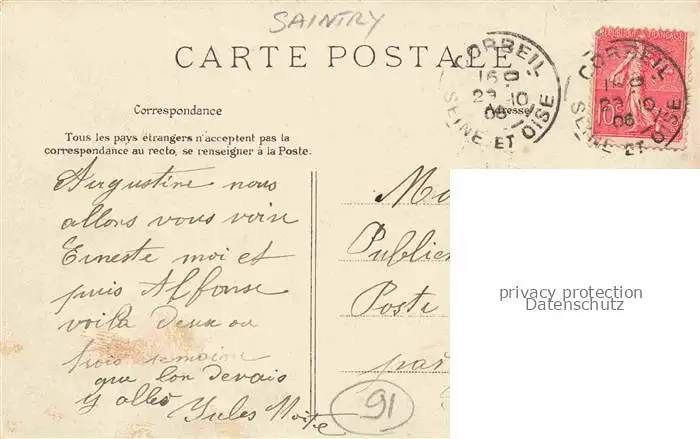 SAINTRY
CARTE POSTALE
CORBEIL
16 10
29 10
06
SEINE ET OISE
CORBEIL
29 10
06
SEINE ET OISE
10c
Correspondance
Adresse
Tous les pays étrangers n'acceptent pas la
correspondance au recto, se renseigner à la Poste.
Augustine nous
allons vous voir
Erneste moi et
puis Alfonse
voilà deux ou
trois semaine
que lon devais
y aller
Jules
Publie
Poste
par
91
privacy protection
Datenschutz